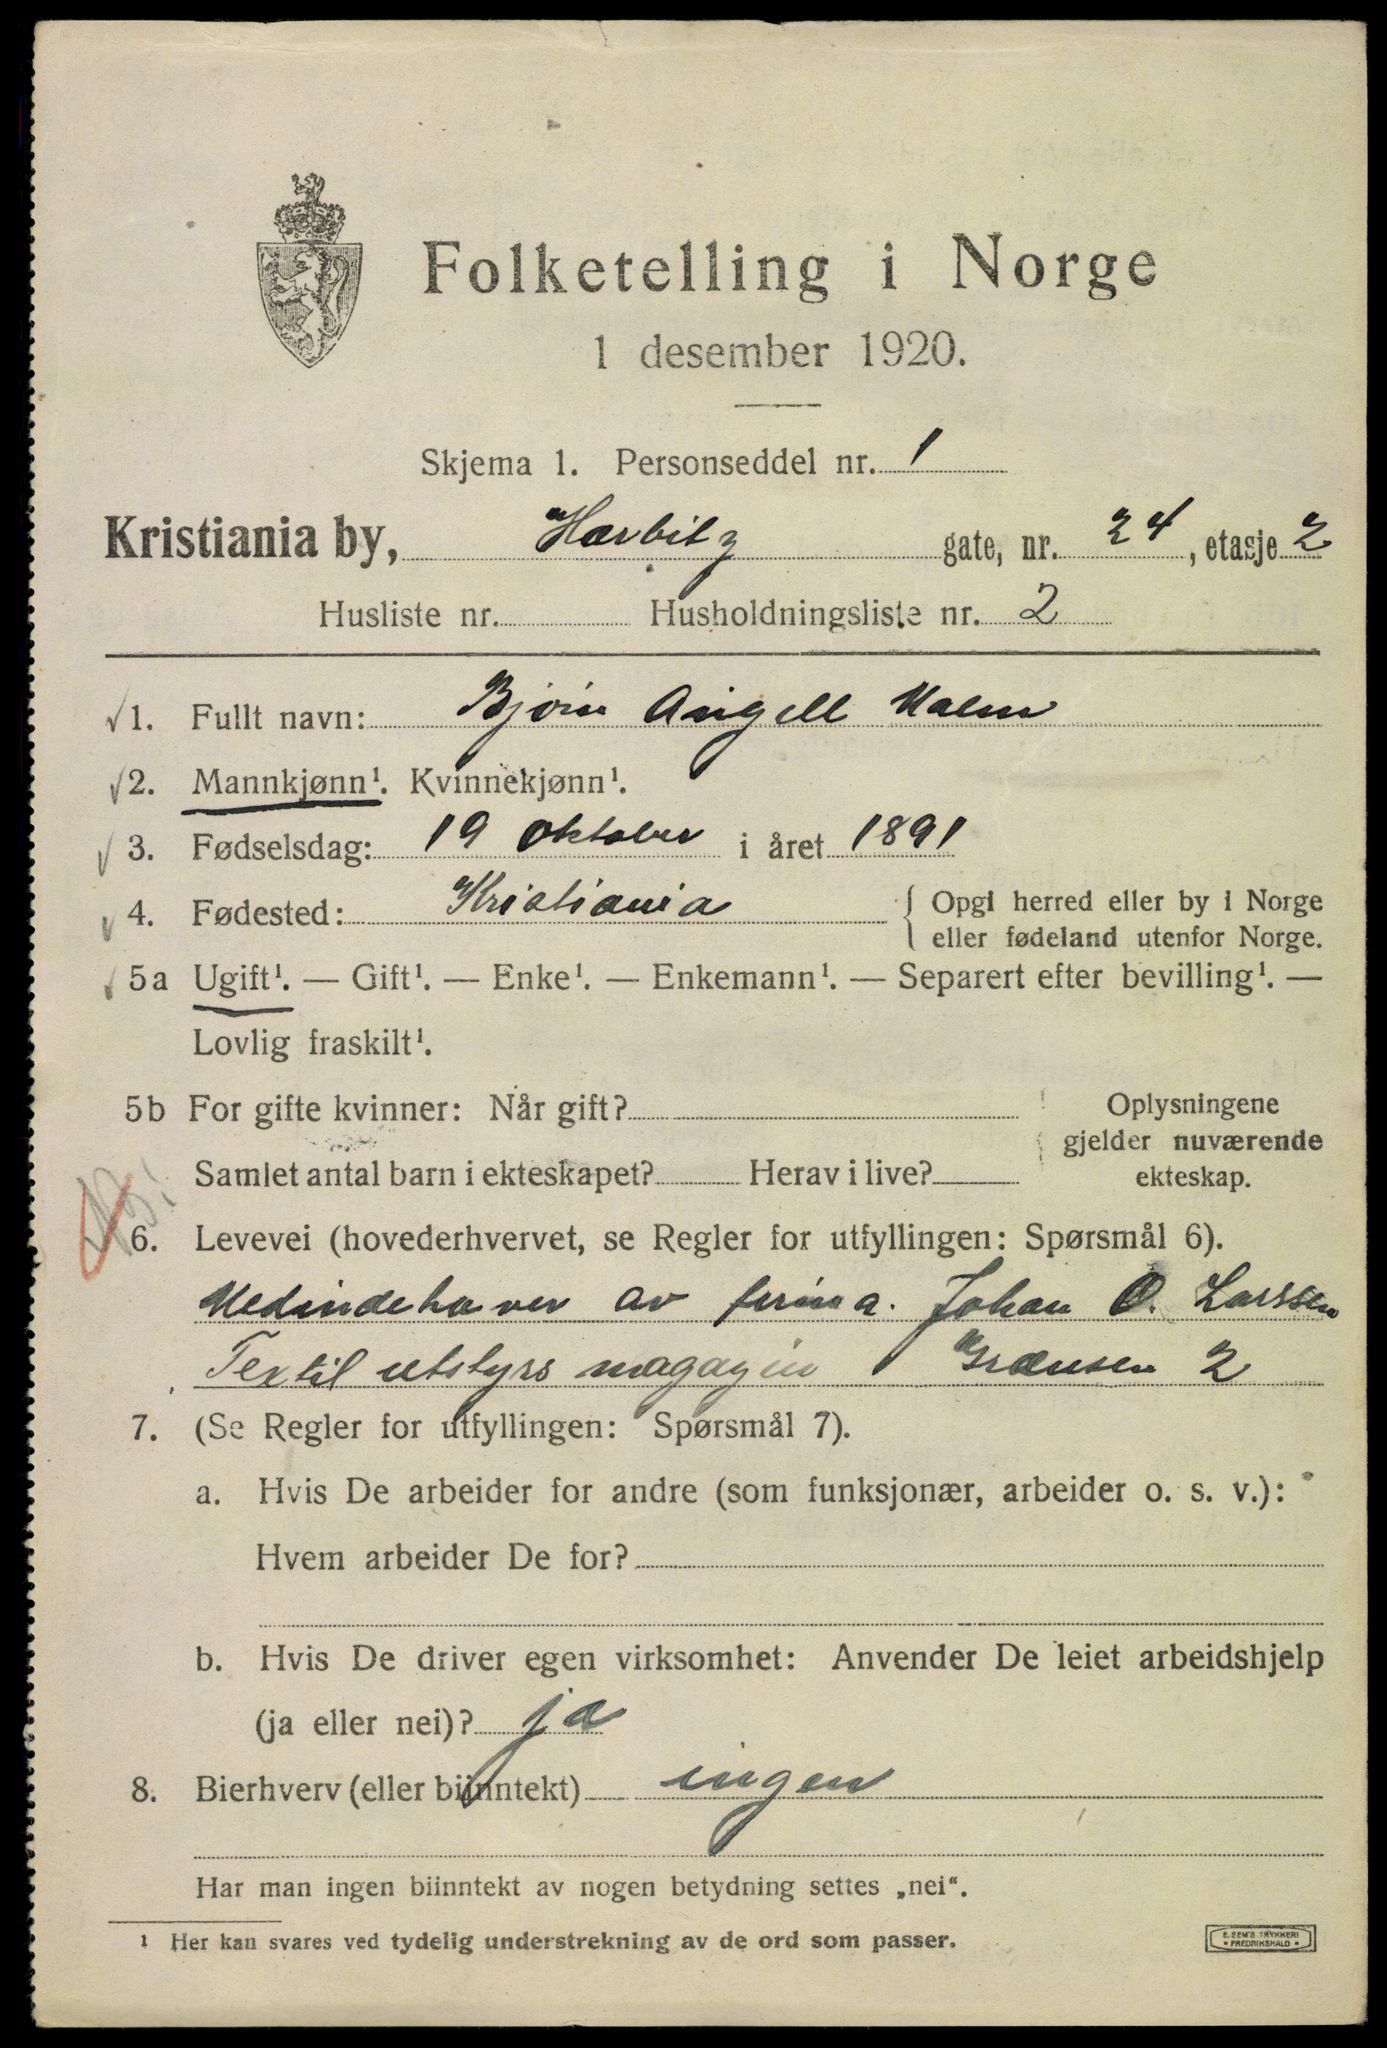 Folketelling i Norge
1 desember 1920.
Skjema 1. Personseddel nr. 1
Kristiania by, Harbitz gate, nr. 24, etasje 2
Husliste nr. Husholdningsliste nr. 2
1. Fullt navn: Bjørn Angell
2. Mannkjønn¹. Kvinnekjønn¹.
3. Fødselsdag: 19 oktober i året 1891
4. Fødested: Kristiania { Opgi herred eller by i Norge
eller fødeland utenfor Norge.
5a Ugift¹. — Gift¹. — Enke¹. — Enkemann¹. — Separert efter bevilling¹. —
Lovlig fraskilt¹.
5b For gifte kvinner: Når gift? Oplysningene
gjelder nuværende
Samlet antal barn i ekteskapet? Herav i live? ekteskap.
6. Levevei (hovederhvervet, se Regler for utfyllingen: Spørsmål 6).
Medindehaver av firma. Johan O. Larssen
Textil utstyrs magazin Grænsen 2
7. (Se Regler for utfyllingen: Spørsmål 7).
a. Hvis De arbeider for andre (som funksjonær, arbeider o. s. v.):
Hvem arbeider De for?
b. Hvis De driver egen virksomhet: Anvender De leiet arbeidshjelp
(ja eller nei)? ja
8. Bierhverv (eller biinntekt) ingen
Har man ingen biinntekt av nogen betydning settes „nei“.
¹ Her kan svares ved tydelig understrekning av de ord som passer.
E. SEM'S TRYKKERI
• FREDRIKSHALD •